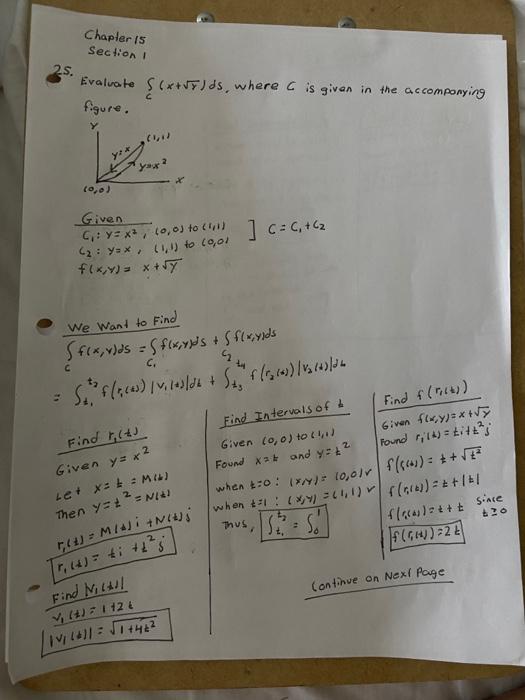 Chapter 15
Section 1
25.
Evaluate ∫ (x+√y) ds, where C is given in the accompanying
C
figure.
y
(1,1)
y=x
y=x²
x
(0,0)
Given
C₁: y = x², (0,0) to (1,1)
C₂: y = x, (1,1) to (0,0)
] C = C₁ + C₂
f(x,y) = x + √y
We Want to Find
∫_C f(x,y)ds = ∫_C₁ f(x,y)ds + ∫_C₂ f(x,y)ds
= ∫_t₁^t₂ f(r₁(t)) |v₁(t)|dt + ∫_t₃^t₄ f(r₂(t)) |v₂(t)|dt
Find r₁(t)
Given y = x²
Let x = t = M(t)
Then y = t² = N(t)
r₁(t) = M(t)i + N(t)j
r₁(t) = ti + t²j
Find |v₁(t)|
v₁(t) = 1 + 2t
|v₁(t)| = √1+4t²
Find Intervals of t
Given (0,0) to (1,1)
Found x=t and y=t²
when t=0: (x,y) = (0,0) ✓
when t=1: (x,y) = (1,1) ✓
Thus, ∫_t₁^t₂ = ∫_0^1
Find f(r₁(t))
Given f(x,y) = x+√y
Found r₁(t) = ti+t²j
f(r₁(t)) = t + √t²
f(r₁(t)) = t + |t|
f(r₁(t)) = t + t since t≥0
f(r₁(t)) = 2t
Continue on Next Page